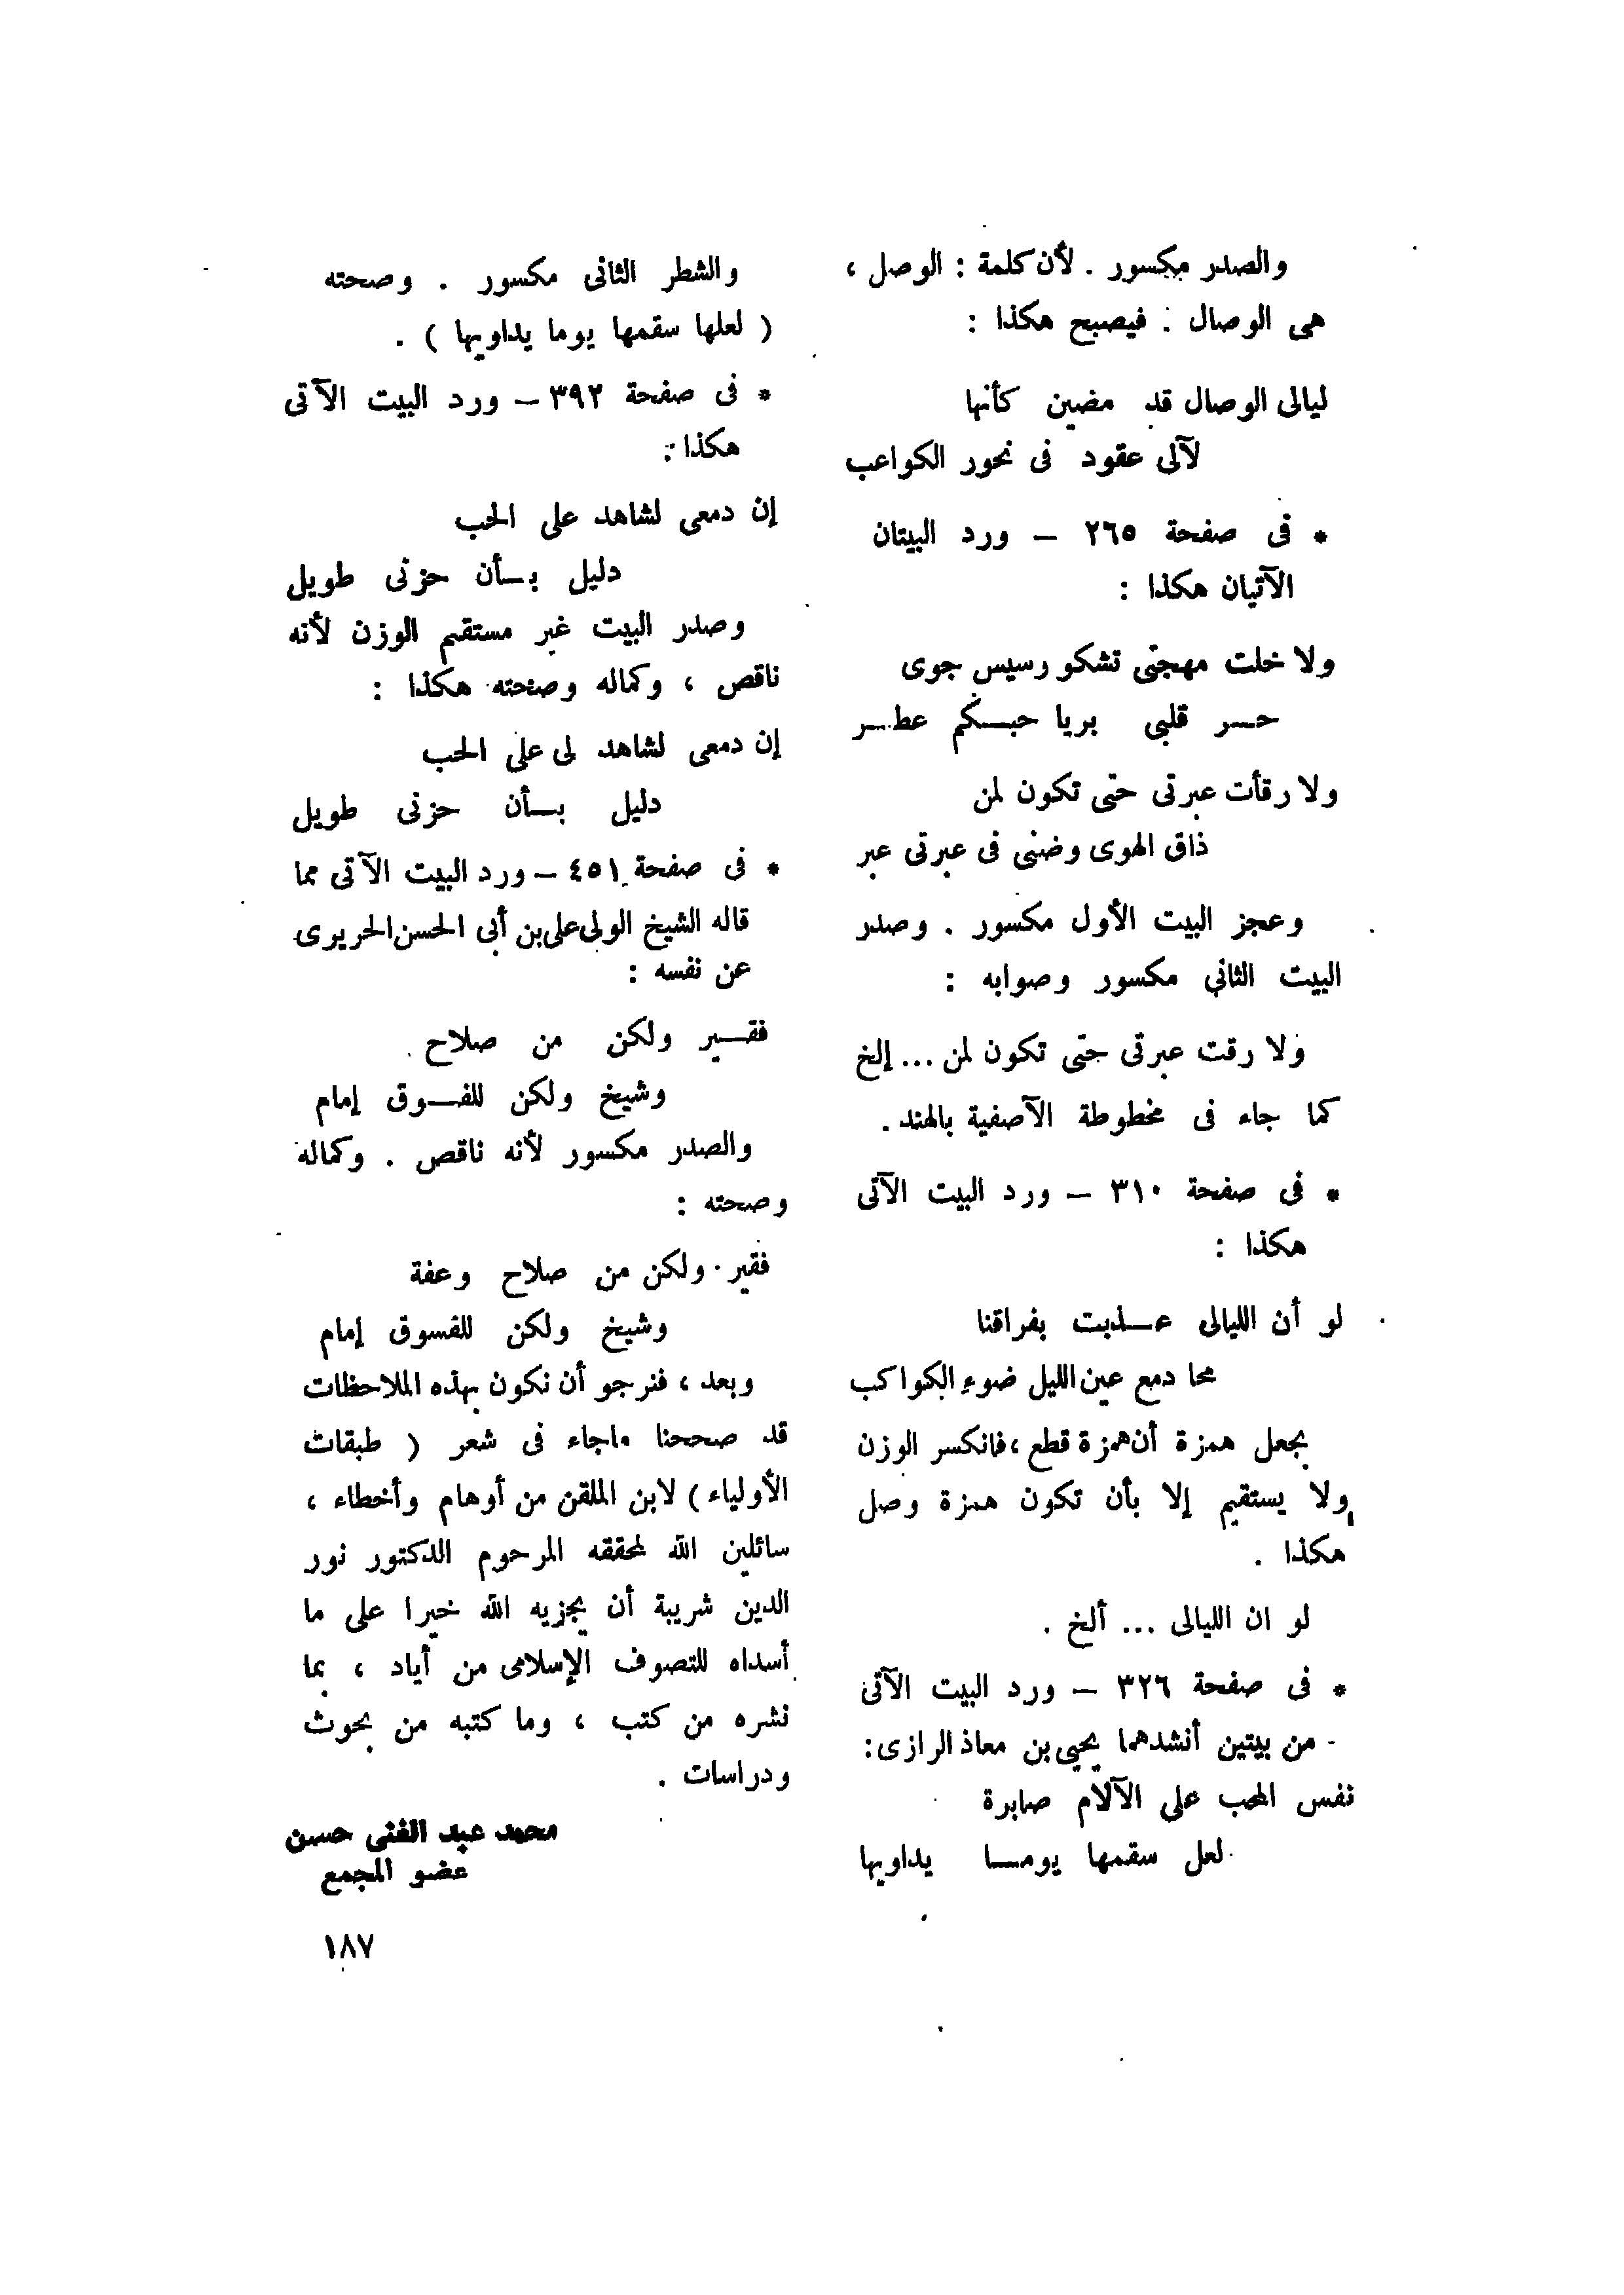 والصدر مكسور . لأن كلمة : الوصل ،
هى الوصال . فيصبح هكذا :
ليالى الوصال قد مضين كأنها
لآلى عقود فى نحور الكواعب
* فى صفحة ٢٦٥ – ورد البيتان
الآتيان هكذا :
ولا خلت مهجتى تشكو رسيس جوى
حـر قلبى بريا حبـكم عطـر
ولا رقأت عبرتى حتى تكون لمن
ذاق الهوى وضنى فى عبرتى عبر
وعجز البيت الأول مكسور . وصدر
البيت الثانى مكسور وصوابه :
ولا رقت عبرتى حتى تكون لمن ... إلخ
كما جاء فى مخطوطة الآصفية بالهند .
* فى صفحة ٣١٠ – ورد البيت الآتى
هكذا :
لو أن الليالى عـذبت بفراقنا
محا دمع عين الليل ضوء الكواكب
بجعل همزة أن همزة قطع ، فانكسر الوزن
ولا يستقيم إلا بأن تكون همزة وصل
هكذا .
لو ان الليالى ... ألخ .
* فى صفحة ٣٢٦ – ورد البيت الآتى
من بيتين أنشدهما يحيى بن معاذ الرازى :
نفس المحب على الآلام صابرة
لعل سقمها يومـا يداويها
والشطر الثانى مكسور . وصحته
( لعلها سقمها يوما يداويها ) .
* فى صفحة ٣٩٢ – ورد البيت الآتى
هكذا :
إن دمعى لشاهد على الحب
دليل بـأن حزنى طويل
وصدر البيت غير مستقيم الوزن لأنه
ناقص ، وكماله وصحته هكذا :
إن دمعى لشاهد لى على الحب
دليل بـأن حزنى طويل
* فى صفحة ٤٥١ – ورد البيت الآتى مما
قاله الشيخ الولى على بن أبى الحسن الحريرى
عن نفسه :
فقـير ولكن من صلاح
وشيخ ولكن للفـوق إمام
والصدر مكسور لأنه ناقص . وكماله
وصحته :
فقير ولكن من صلاح وعفة
وشيخ ولكن للفسوق إمام
وبعد ، فنرجو أن نكون بهذه الملاحظات
قد صححنا ماجاء فى شعر ( طبقات
الأولياء ) لابن الملقن من أوهام وأخطاء ،
سائلين الله لمحققه المرحوم الدكتور نور
الدين شريبة أن يجزيه الله خيرا على ما
أسداه للتصوف الإسلامى من أياد ، بما
نشره من كتب ، وما كتبه من بحوث
ودراسات .
محمد عبد الغنى حسن
عضو المجمع
١٨٧